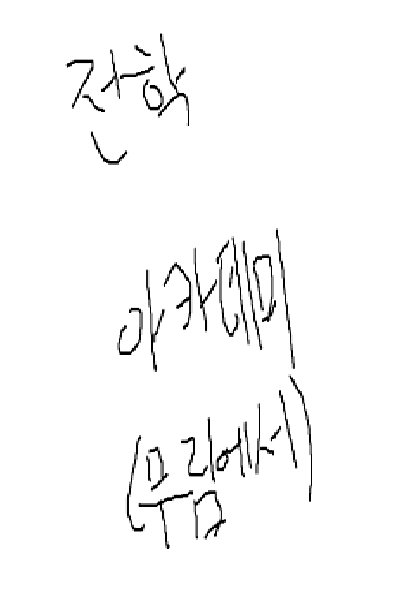 전학
아카데미
(무림에서)